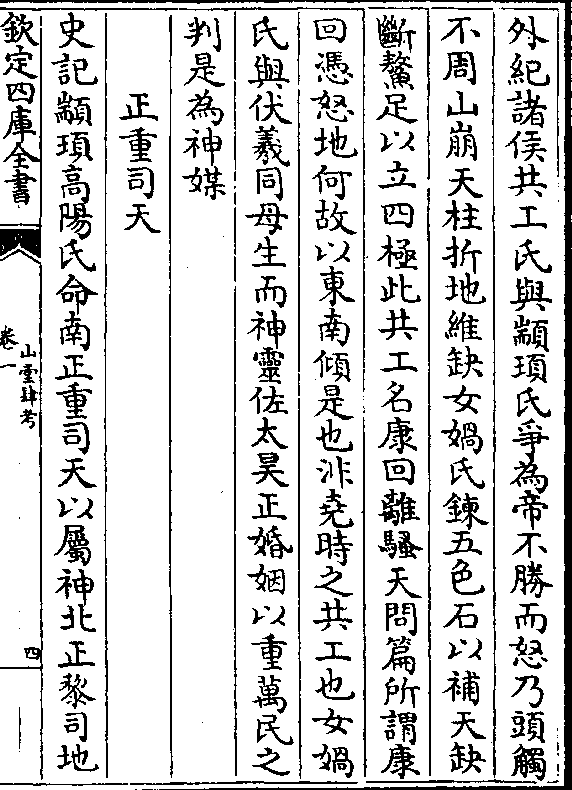 外紀諸侯共工氏與顓頊氏爭為帝不勝而怒乃頭觸
不周山崩天柱折地維缺女媧氏鍊五色石以補天缺
斷鼇足以立四極此共工名康回離騷天問篇所謂康
回憑怒地何故以東南傾是也非堯時之共工也女媧
氏與伏羲同母生而神靈佐太昊正婚姻以重萬民之
判是為神媒
正重司天
史記顓頊高陽氏命南正重司天以屬神北正黎司地
欽定四庫全書
卷一
山堂肆考
四